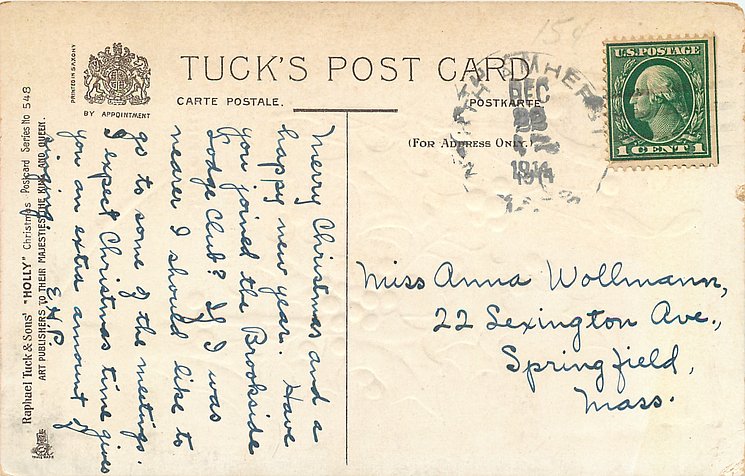 15¢
PRINTED IN SAXONY
BY APPOINTMENT
TUCK'S POST CARD
CARTE POSTALE.
POSTKARTE
(For Address Only.)
AMHERST
DEC
1914
U.S. POSTAGE
1 CENT 1
Raphael Tuck & Sons' "HOLLY" Christmas Postcard Series No 548
ART PUBLISHERS TO THEIR MAJESTIES THE KING AND QUEEN.
Merry Christmas and a
happy new year. Have
you joined the Brookside
Lodge Club? If I was
nearer I should like to
go to some of the meetings.
I expect Christmas time gives
you an extra amount of
Miss Anna Wollmann,
22 Lexington Ave.,
Springfield,
Mass.